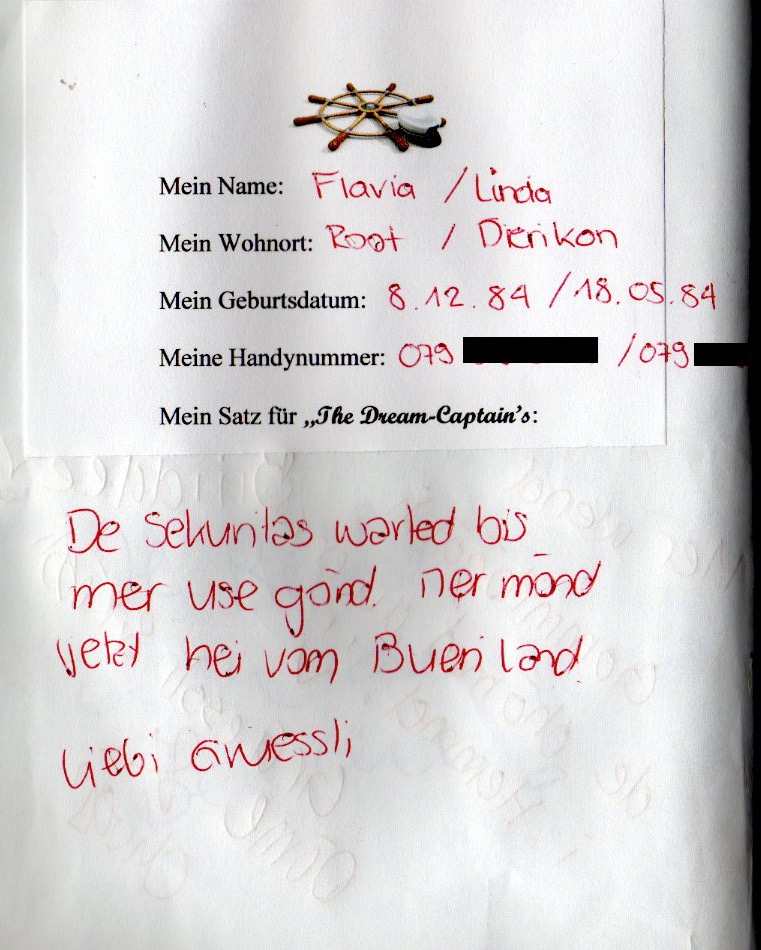 Mein Name: Flavia / Linda
Mein Wohnort: Root / Dierikon
Mein Geburtsdatum: 8.12.84 / 18.05.84
Meine Handynummer: 079 / 079
Mein Satz für „The Dream-Captain's:
De Sekuritas warted bis
mer use gönd. Mer mönd
jetzt hei vom Bueri land
Liebi Grüessli